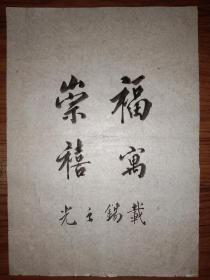 福寓
崇禧
載錫之光